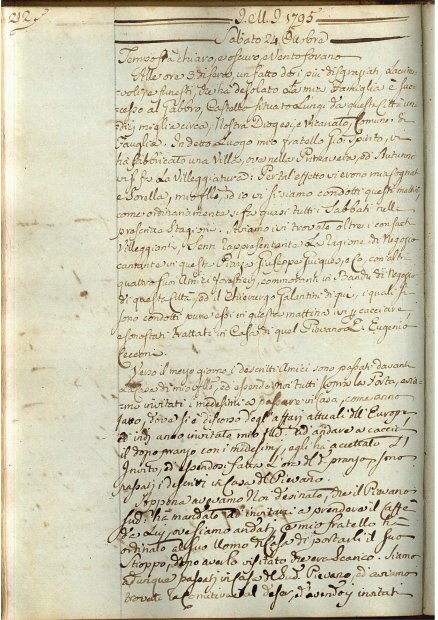 212
J. M. J. 1795
Sabato 24 Ottobre
Tempo fra chiaro, e oscuro, e Vento forano
Alle ore 3 di sera un fatto de i più disgraziati,
volezze funesti che ha desolato La mia Famiglia è suc-
cesso al Gabbro, Castello situato Lungi da questa Città un-
dici miglia circa, Nostra Diogesi, e Vicariato, Comune di
Fauglia. In detto Luogo mio fratello Gio: Spirito, vi
ha fabbricato una Villa, ove nella Primavera, ed Autunno
vi si fà La Villeggiatura: Per tal effetto vi erono mia
e Sorella, mio fratello, ed io vi ci siamo condotti questa mattina
come ordinariamente si fà quasi tutti i Sabbati nelle
prescritte Stagioni. Abiamo ivi trovato oltre i consueti
Villeggianti, Senn rappresentante La Ragione di Negozio
cantante in questa Piazza Giuseppe Guiguer, e Co, con altri
quattro suoi Amici forestieri, commoranti in Banchi di Negozio
di questa Città, ed il Chierergo Galantini di qui, i quali si
sono condotti pure essi in questa mattina ivi a cacciare
e sono stati trattati in Casa di quel Piovano L. Eugenio
Cecconi.
Verso il mezzo giorno i descritti Amici sono passati davanti
La Casa di mio fratello, ed essendo noi tutti sopra La Porta, avia-
mo invitati i medesimi a passare in casa, come anno
fatto, dove si è discorso degl'affari attuali dell'Europa,
ed indi anno invitato mio fratello ed andare a caccia
il dopo pranzo con i medesimi, egli ha accettato L'
Invito, ed essendosi fatta L'ora del pranzo sono
passati i descritti in Casa di Pievano.
Appena avevamo Noi desinato, che il Pievano
sud: ha mandato ad invitarci a prendere il Caffè
da Lui, ove siamo andati, e mio fratello ha
ordinato al suo Uomo di Casa di portarli il suo
Stioppo, dopo averlo visitato che era Scarico. Siamo
adunque passati in Casa del Sud: Pievano, ed aviamo
trovato La Comitiva al deser, ed avendoci invitati